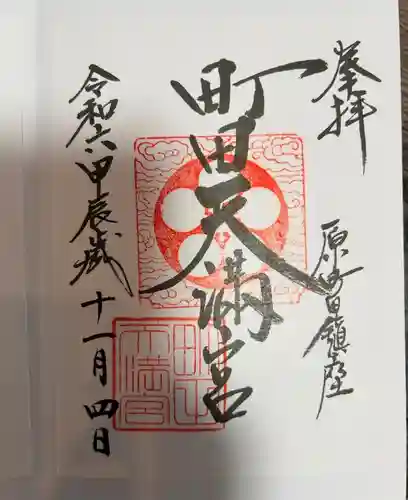 奉拝
原町田鎮座
町田天満宮
令和六甲辰歳十一月四日